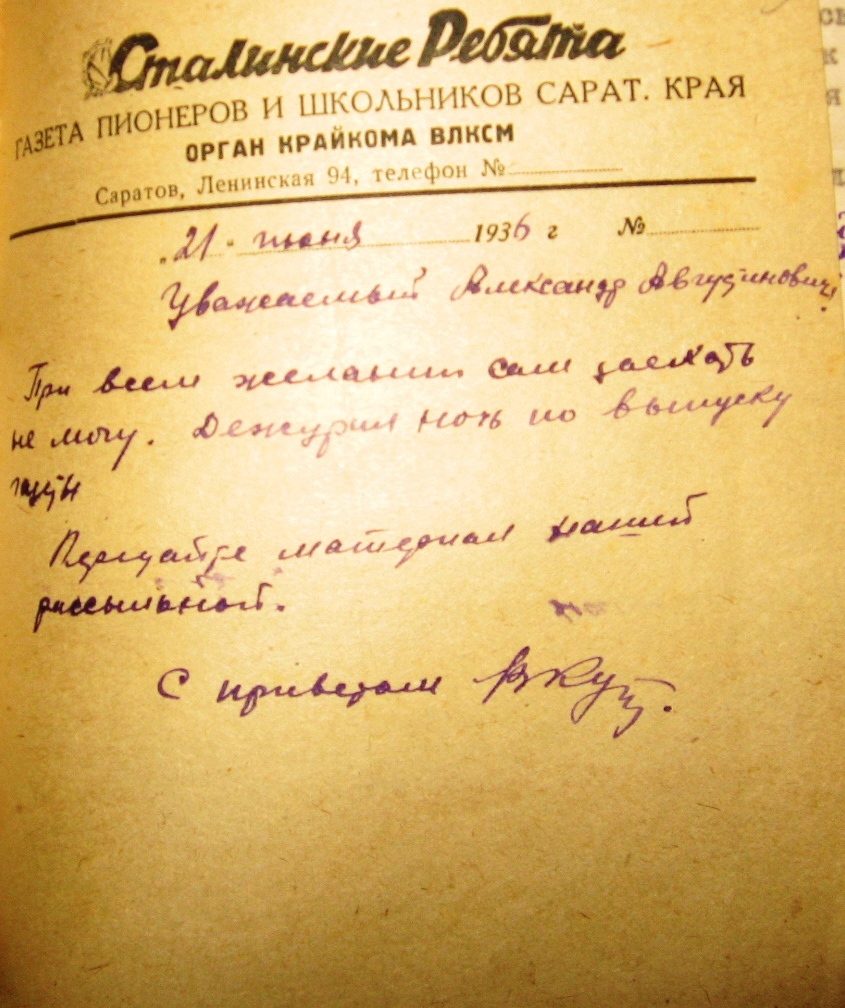 Сталинские Ребята
ГАЗЕТА ПИОНЕРОВ И ШКОЛЬНИКОВ САРАТ. КРАЯ
ОРГАН КРАЙКОМА ВЛКСМ
Саратов, Ленинская 94, телефон №
„21" июня 1936 г №
Уважаемый Александр Августинович!
При всем желании сам заехать
не могу. Дежурил ночь по выпуску
газеты
Передайте материал нашей
рассыльной.
С приветом